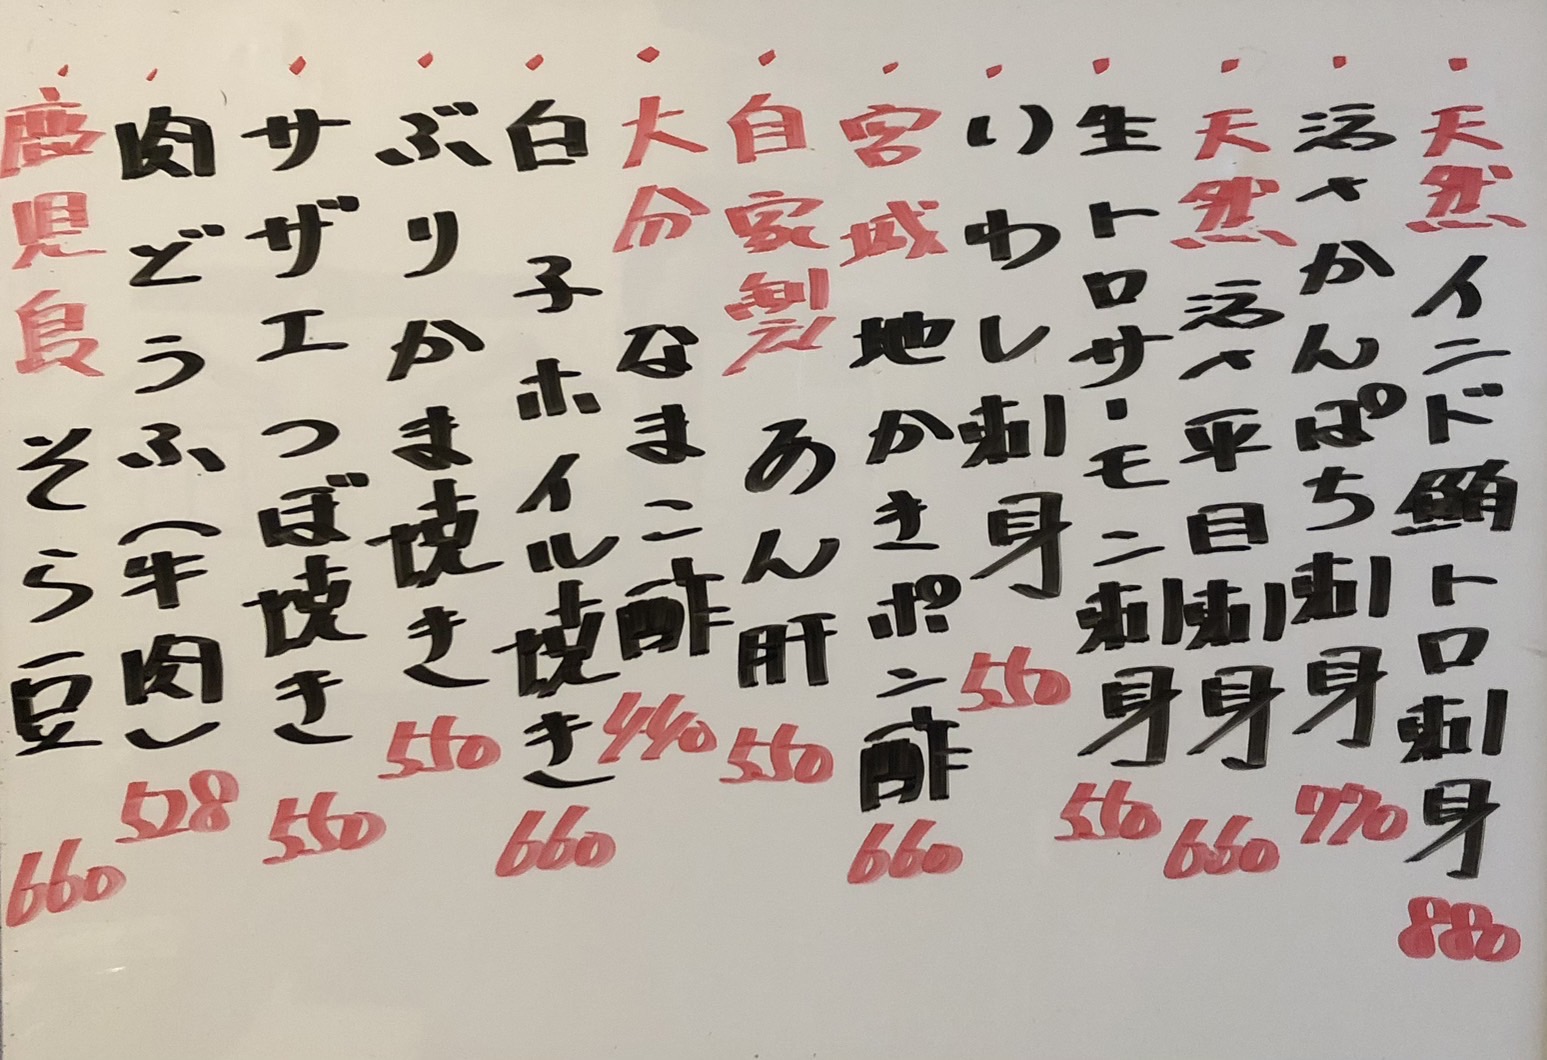 ・天然 インド鮪トロ刺身 880
・活〆かんぱち刺身 770
・天然 活〆平目刺身 660
・生トロサーモン刺身 550
・いわし刺身 550
・宮城 地かきポン酢 660
・自家製 あん肝 550
・大分 なまこ酢 440
・白子ホイル焼き 660
・ぶりかま焼き 550
・サザエつぼ焼き 550
・肉どうふ(牛肉) 528
・鹿児島 そら豆 660